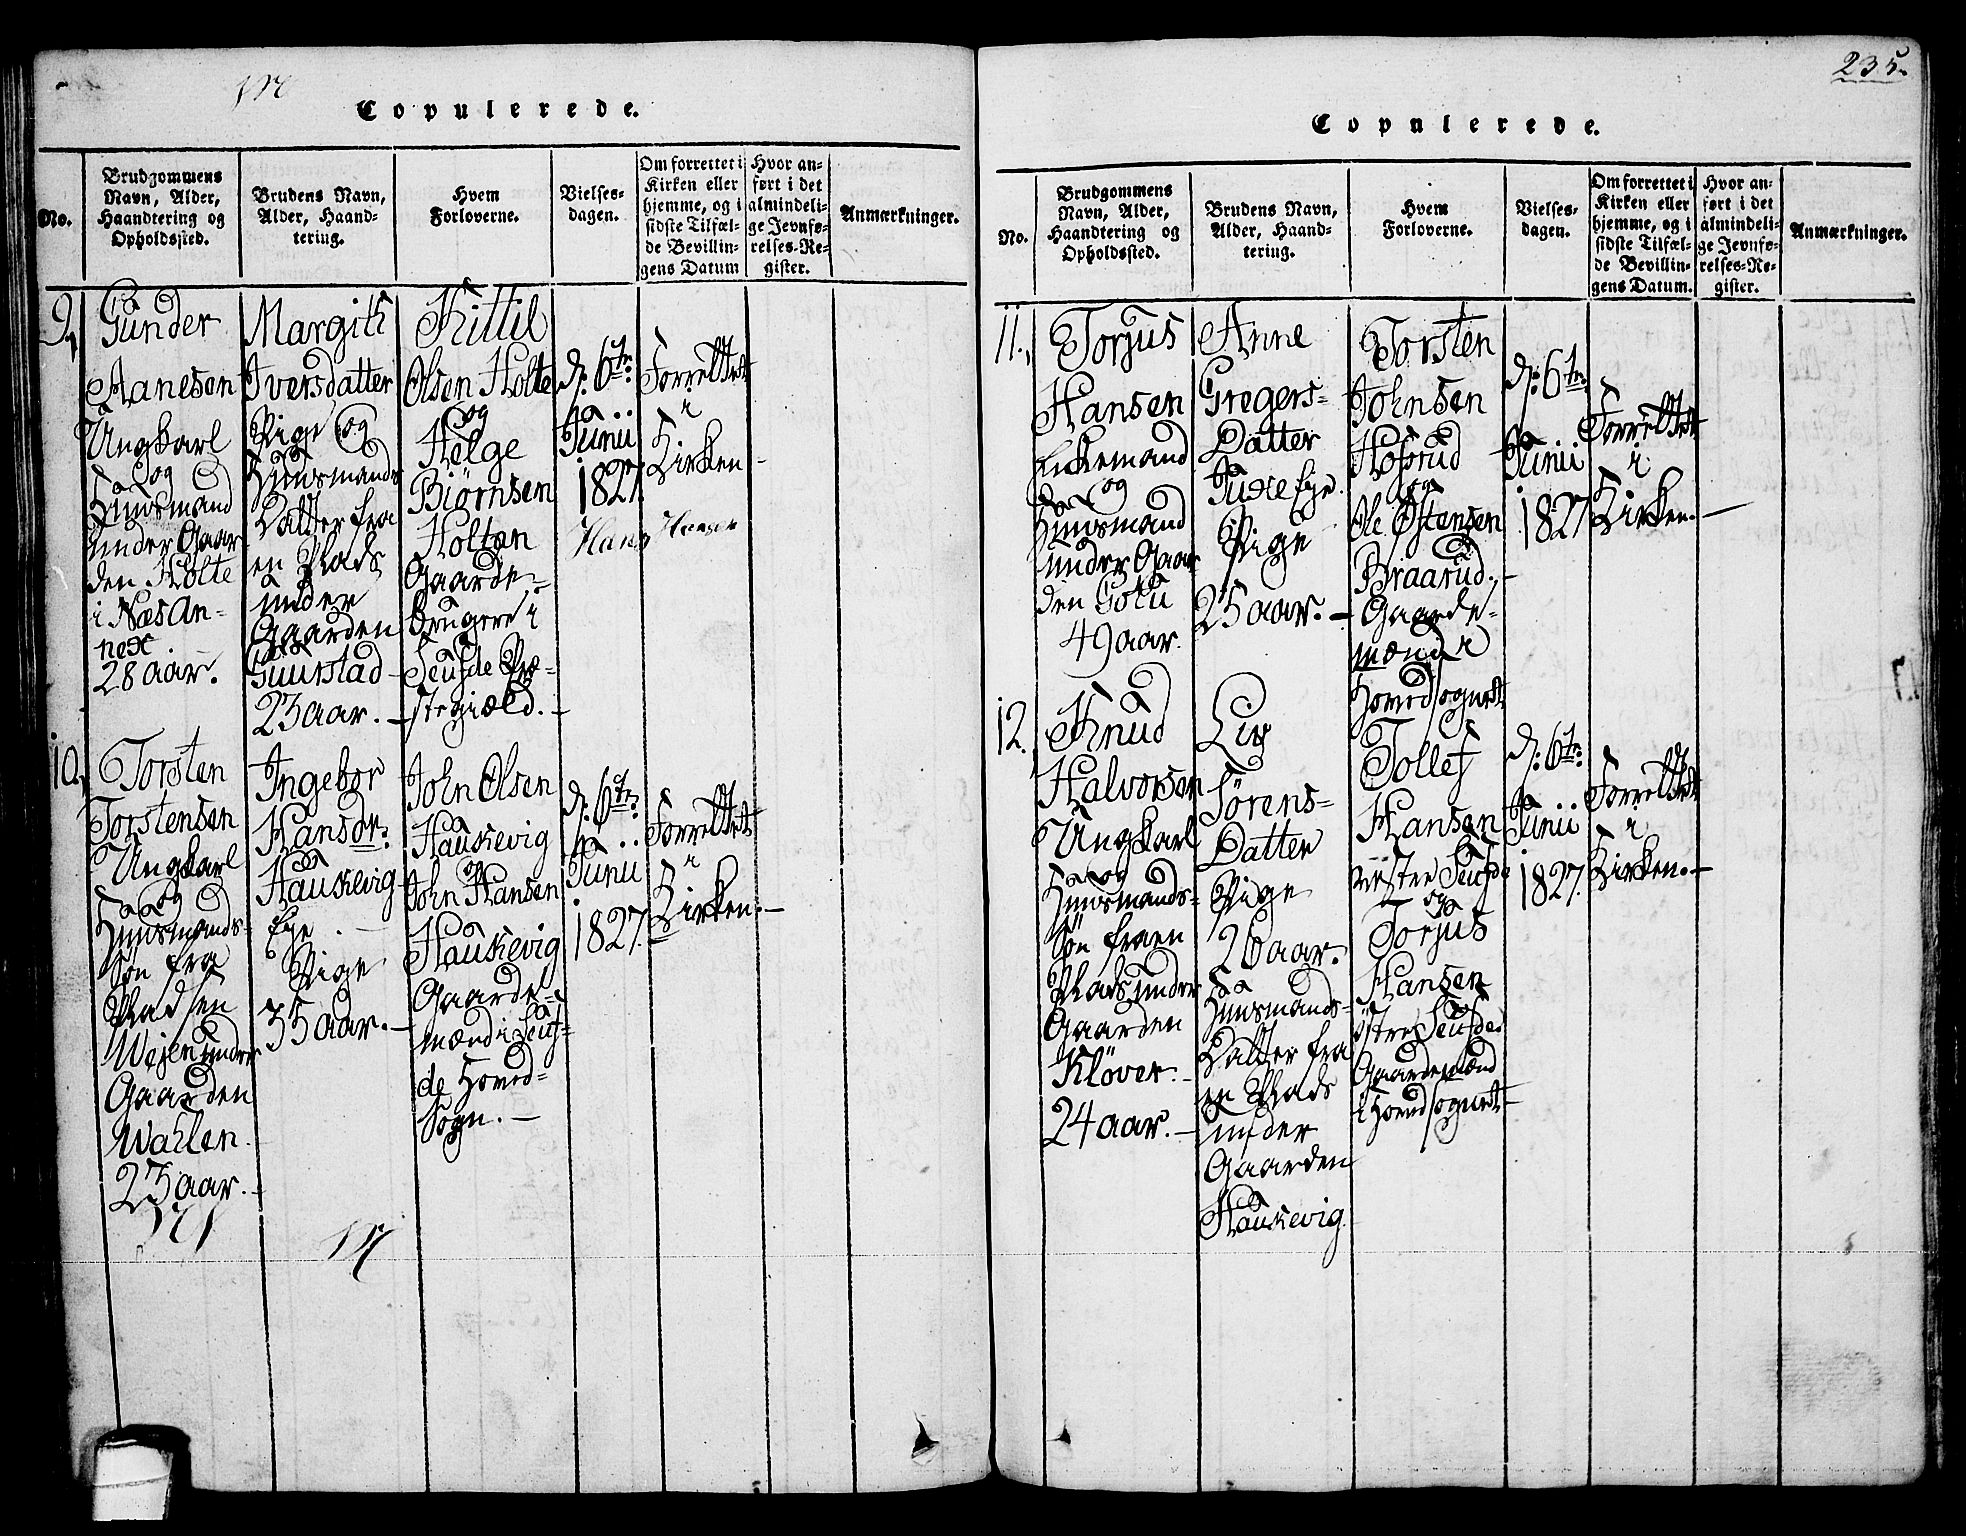 Copulerede.
No.
Brudgommens
Navn, Alder,
Haandtering og
Opholdssted.
Brudens Navn,
Alder, Haand-
tering.
Hvem
Forloverne.
Vielses-
dagen.
Om forrettet i
Kirken eller
hjemme, og i
sidste Tilfæl-
de Bevillin-
gens Datum
Hvor an-
ført i det
almindeli-
ge Jevnfø-
relses-Re-
gister.
Anmærkninger.
9,
Gunder
Aanesen
Ungkarl
og
Huusmand
under Gaar
den Holte
i Næs An-
nex.
28 aar.
Margith
Iversdatter
Pige og
Huusmands
Datter fra
en Plads
under
Gaarden
Guurstad
23 aar.
Kittil
Olsen Holte
og
Helge
Biørnsen
Holtan
Gaarde-
brugere i
Seufde Præ-
stegiæld.
d: 6te
Junii
1827.
Forrettet
i
Kirken
Hans Hansen
10.,
Torsten
Torstensen
Ungkarl
og
Huusmands-
Søn fra
Pladsen
Wejen under
Gaarden
Wahlen.
23 aar.
Ingebor
Hansdr.
Haukevig
Eje.
Pige
35 aar.
John Olsen
Haukevig
og
John Hansen
Haukevig
Gaarde-
mænd i Seuf-
de Hoved-
Sogn.
d: 6te
Junii
1827.
Forrettet
i
Kirken.
235.
Copulerede.
No.
Brudgommens
Navn, Alder,
Haandtering og
Opholdssted.
Brudens Navn,
Alder, Haand-
tering.
Hvem
Forloverne.
Vielses-
dagen.
Om forrettet i
Kirken eller
hjemme, og i
sidste Tilfæl-
de Bevillin-
gens Datum.
Hvor an-
ført i det
almindeli-
ge Jevnfø-
relses-Re-
gister.
Anmærkninger.
11.,
Torjus
Hansen
Enkemand
og
Huusmand
under Gaar
den Gotu
49 aar.
Anne
Gregers-
Datter
Eje.
Pige
25 aar.
Torsten
Johnsen
Hofsrud
og
Ole Østensen
Braarud.
Gaarde-
mænd i
Hovedsognet
d: 6te
Junii
1827
Forrettet
i
Kirken.
12.
Knud
Halvorsen
Ungkarl
og
Huusmands-
Søn fra en
Plads under
Gaarden
Kløver.
24 aar.
Liv
Sørens-
Datter
Pige
26 aar.
Huusmands-
Datter fra
en Plads
under
Gaarden
Haukevig
Tollef
Hansen
Vestre Seufde
og
Torjus
Hansen
Østre Seufde
Gaardemænd
i Hovedsognet
d: 6te
Junii
1827.
Forrettet
i
Kirken.